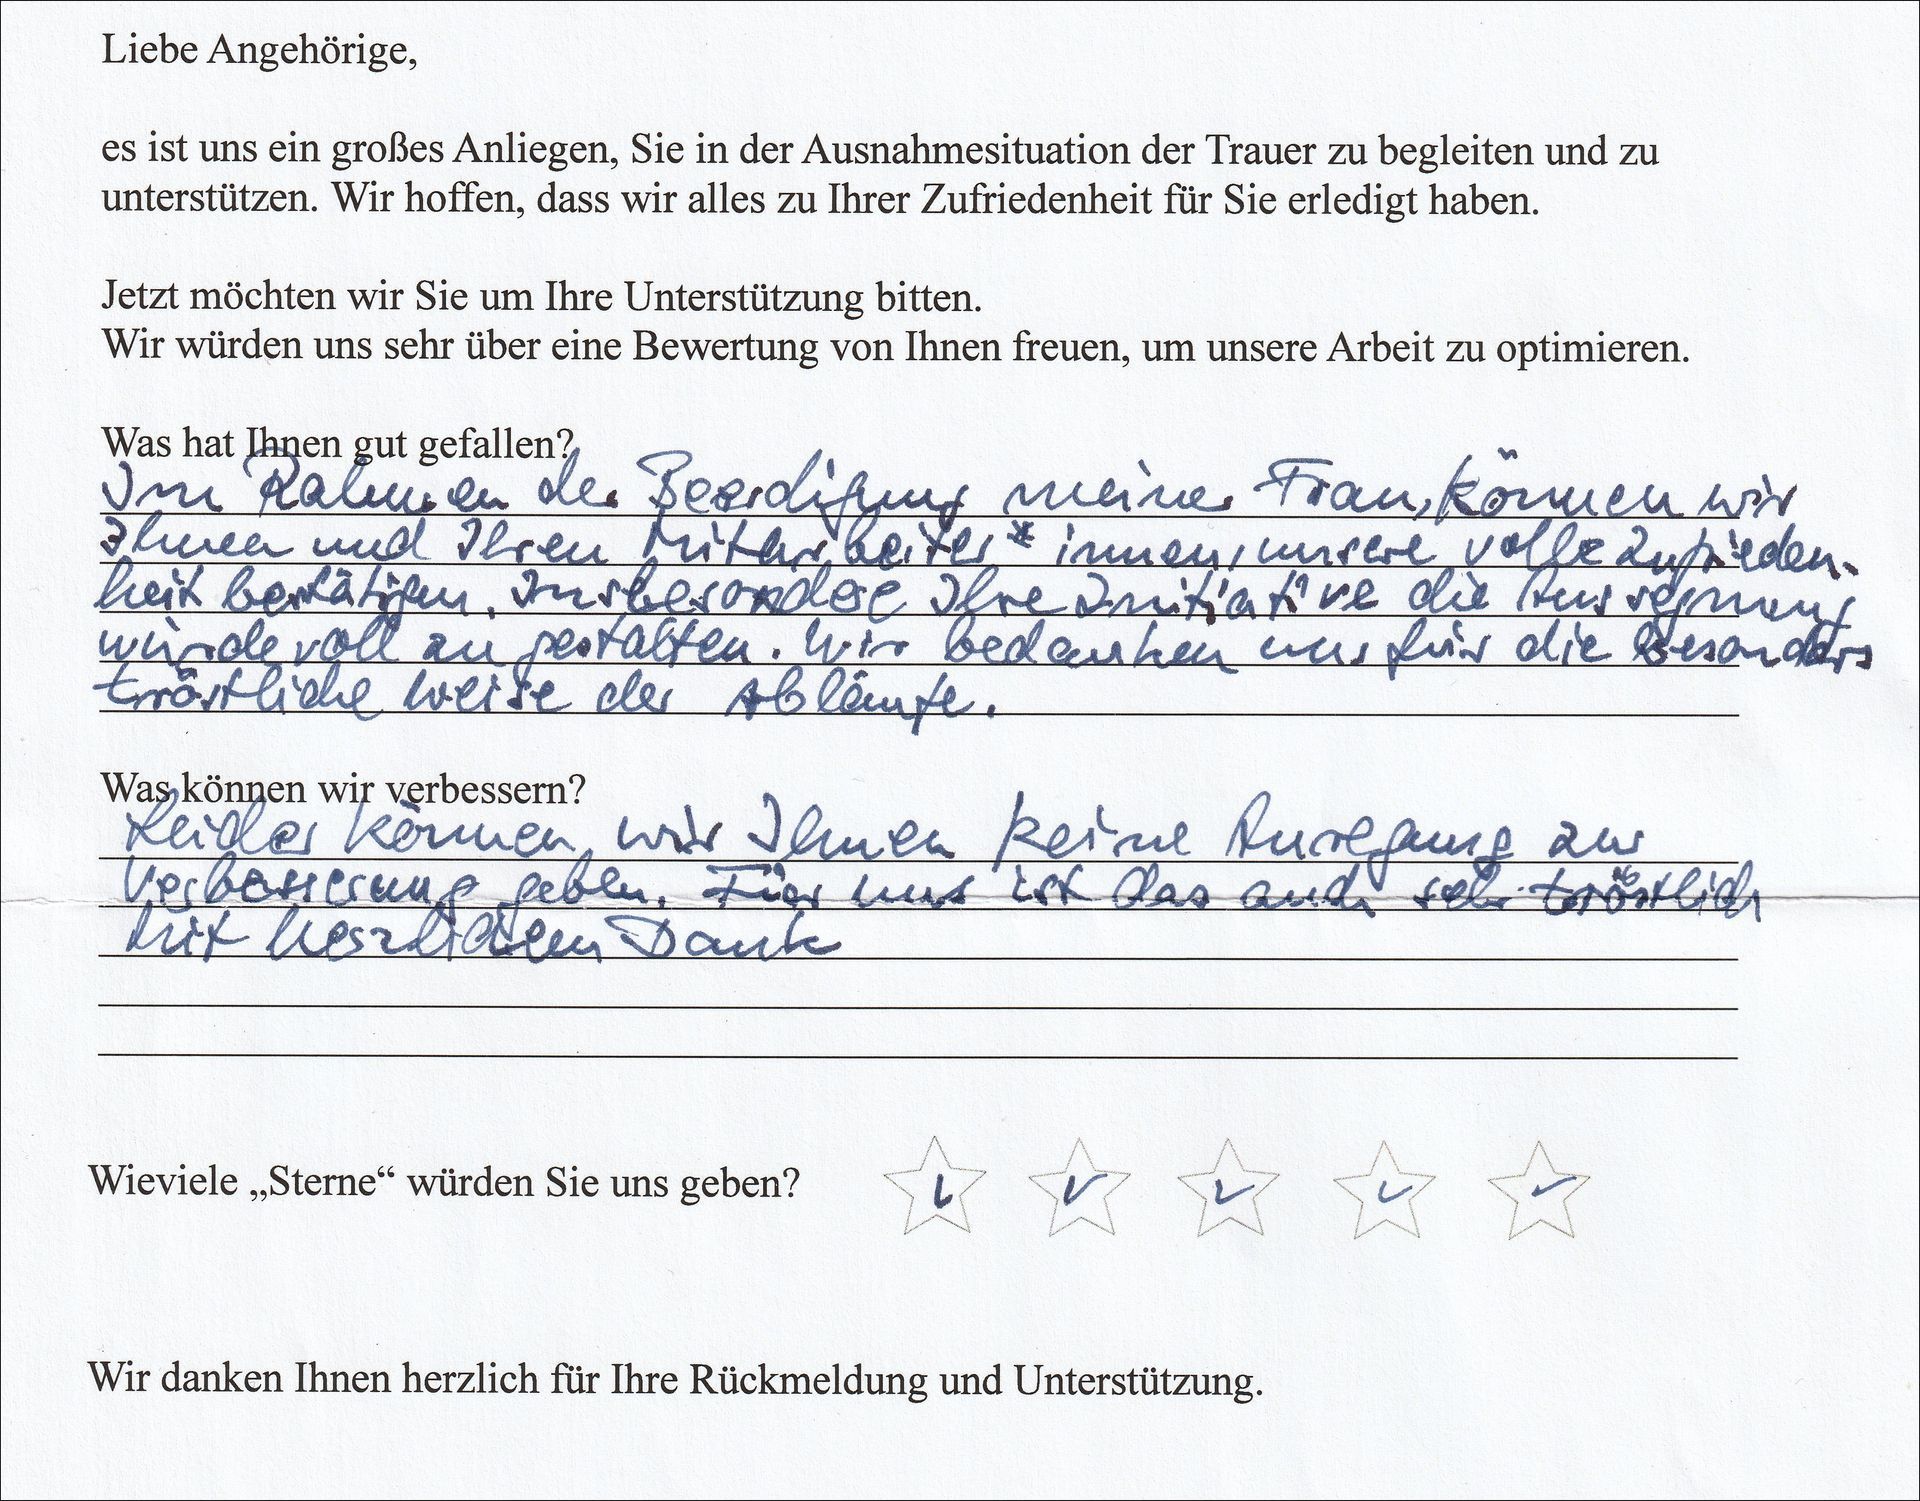 Liebe Angehörige,
es ist uns ein großes Anliegen, Sie in der Ausnahmesituation der Trauer zu begleiten und zu
unterstützen. Wir hoffen, dass wir alles zu Ihrer Zufriedenheit für Sie erledigt haben.
Jetzt möchten wir Sie um Ihre Unterstützung bitten.
Wir würden uns sehr über eine Bewertung von Ihnen freuen, um unsere Arbeit zu optimieren.
Was hat Ihnen gut gefallen?
Im Rahmen der Beerdigung meiner Frau, können wir
Ihnen und Ihren Mitarbeiter*innen, unsere volle Zufrieden-
heit bestätigen. Insbesondere Ihre Initiative die Aussegnung
würdevoll zu gestalten. Wir bedanken uns für die besonders
tröstliche Weise der Abläufe.
Was können wir verbessern?
Leider können wir Ihnen keine Anregung zur
Verbesserung geben. Für uns ist das auch sehr tröstlich
Mit herzlichem Dank
Wieviele „Sterne“ würden Sie uns geben?
Wir danken Ihnen herzlich für Ihre Rückmeldung und Unterstützung.